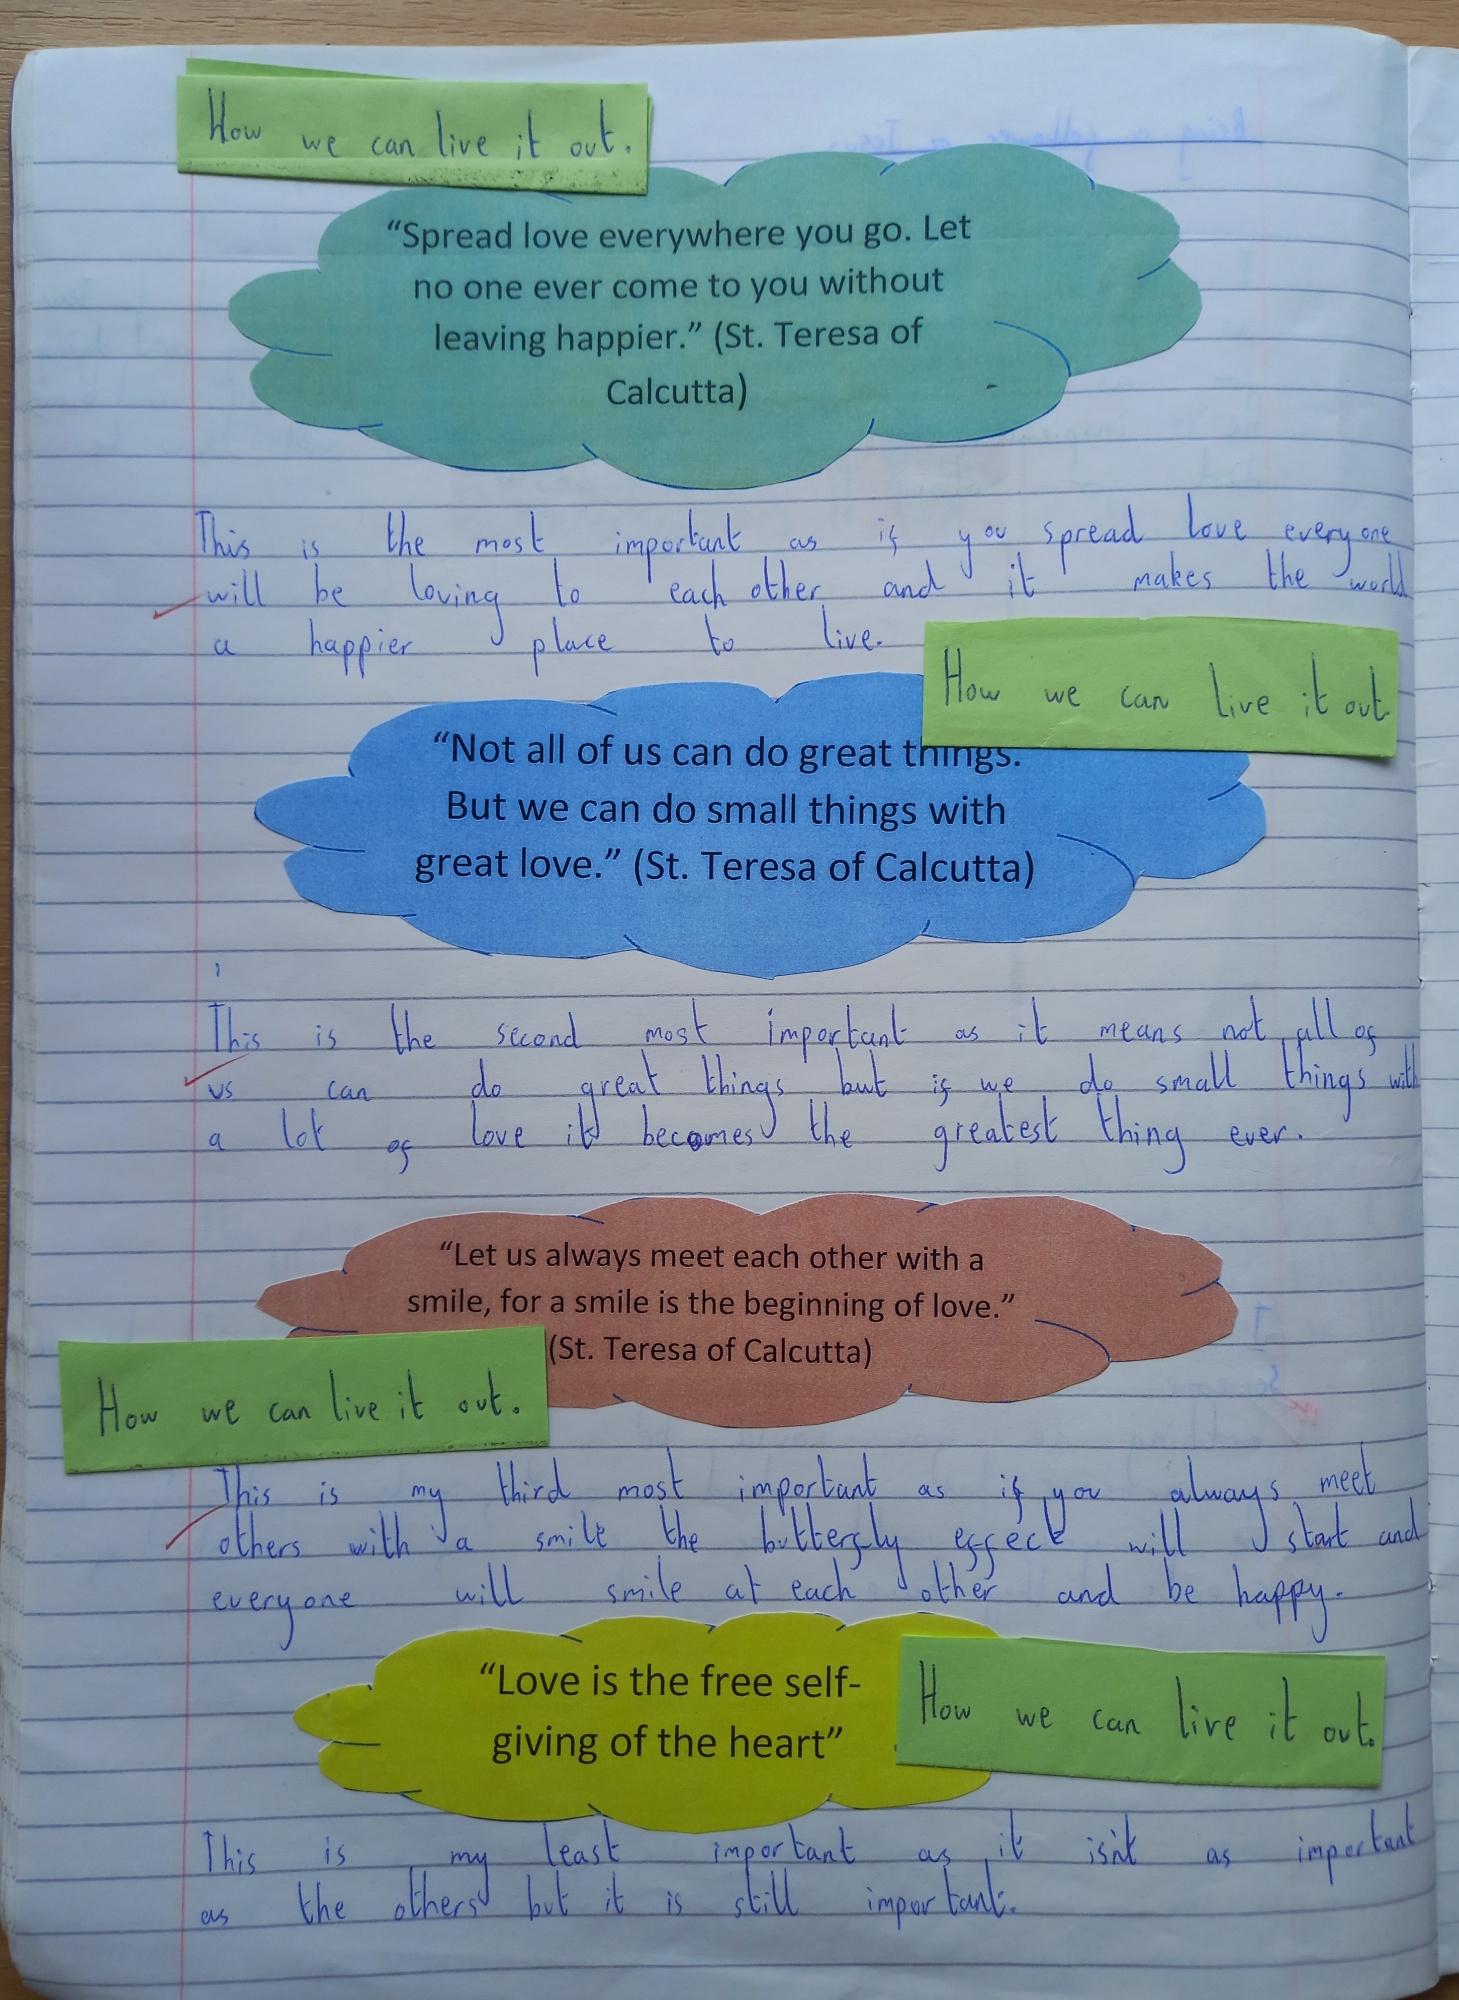 How we can live it out.
“Spread love everywhere you go. Let
no one ever come to you without
leaving happier.” (St. Teresa of
Calcutta)
This is the most important as if you spread love everyone
will be loving to each other and it makes the world
a happier place to live.
How we can live it out
“Not all of us can do great things.
But we can do small things with
great love.” (St. Teresa of Calcutta)
This is the second most important as it means not all of
us can do great things but if we do small things with
a lot of love it becomes the greatest thing ever.
“Let us always meet each other with a
smile, for a smile is the beginning of love.”
(St. Teresa of Calcutta)
How we can live it out.
This is my third most important as if you always meet
others with a smile the butterfly effect will start and
everyone will smile at each other and be happy.
“Love is the free self-
giving of the heart”
How we can live it out.
This is my least important as it isn't as important
as the others but it is still important.